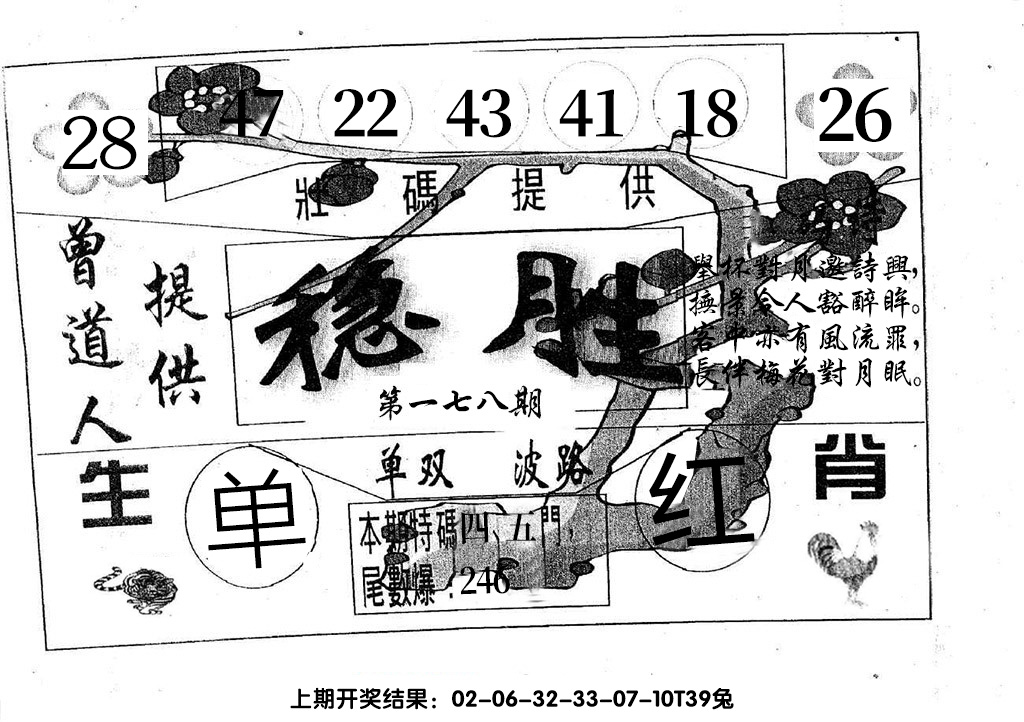 28 47 22 43 41 18 26
壯碼提供
曾道人
提供
稳胜
第一七八期
舉杯對月邀詩興，
撫景令人豁醉眸。
客中亦有風流罪，
長伴梅花對月眠。
单双 波路
生肖
单
红
本期特碼四、五門，
尾數爆：246
上期开奖结果：02-06-32-33-07-10T39兔